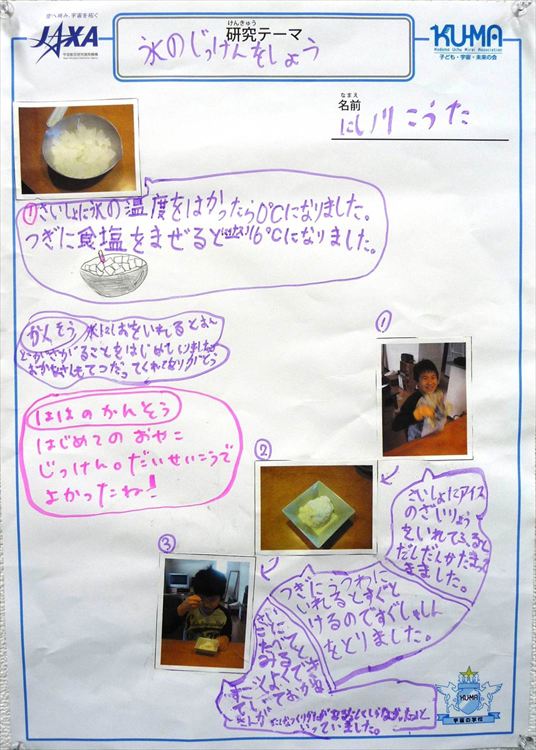 空へ挑み、宇宙を拓く
JAXA
宇宙航空研究開発機構
けんきゅう
研究テーマ
氷のじっけんをしよう
KU-MA
Kodomo Uchu Mirai Association
子ども・宇宙・未来の会
なまえ
名前
にし川 こうた
①さいしょに氷の温度をはかったら0℃になりました。
つぎに食塩をまぜると
16℃になりました。
かんそう
氷にしおをいれるとおん
どがさがることをはじめてしりました。
おかあさんもてつだってくれてありがとう
ははのかんそう
はじめてのおやこ
じっけん。だいせいこうで
よかったね!
①
さいしょにアイス
のざいりょう
をいれてふると
だんだんかたまって
きました。
②
つぎにうつわに
いれるとすぐと
けるのですぐしゃしん
をとりました。
③
さいごに
たべて
みると
すごくよくでき
ていておかあ
さんが
いっていました。
KU-MA
宇宙の学校